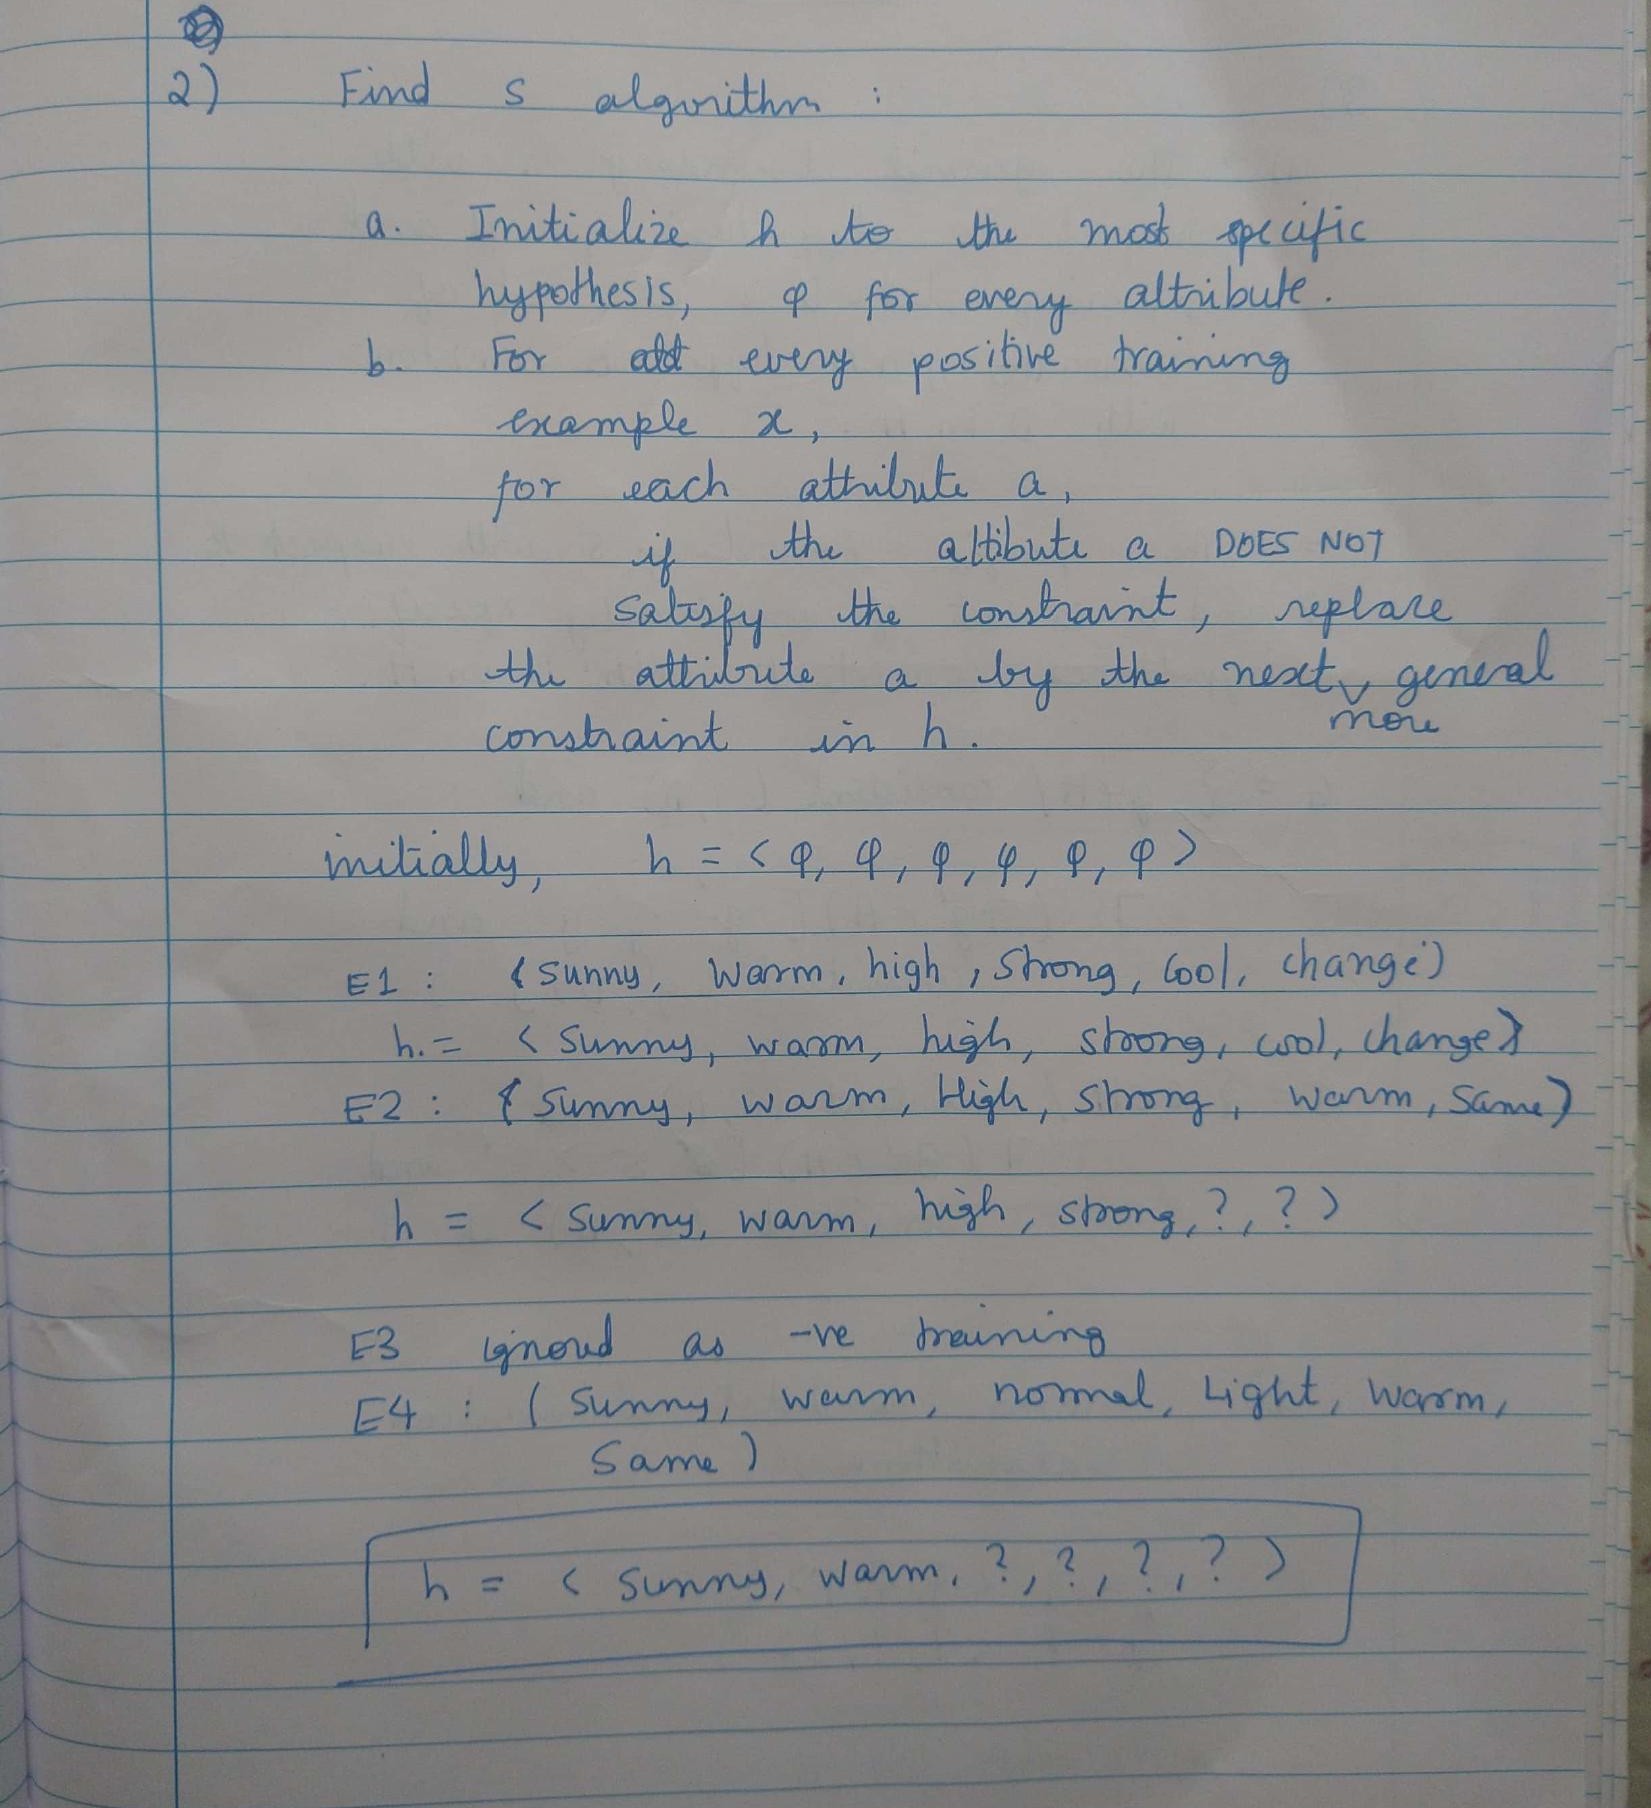 2) Find S algorithm :
a. Initialize h to the most specific
hypothesis, φ for every attribute.
b. For every positive training
example x,
for each attribute a,
if the attibute a DOES NOT
satisfy the constraint, replace
the attribute a by the next more general
constraint in h.
initially, h = < φ, φ, φ, φ, φ, φ >
E1 : (sunny, Warm, high, Strong, Cool, change)
h = < sunny, warm, high, strong, cool, change>
E2 : (Sunny, warm, High, Strong, warm, Same)
h = < sunny, warm, high, strong, ?, ? >
E3 ignored as -ve training
E4 : (Sunny, warm, normal, Light, Warm,
Same)
h = < sunny, warm, ?, ?, ?, ? >